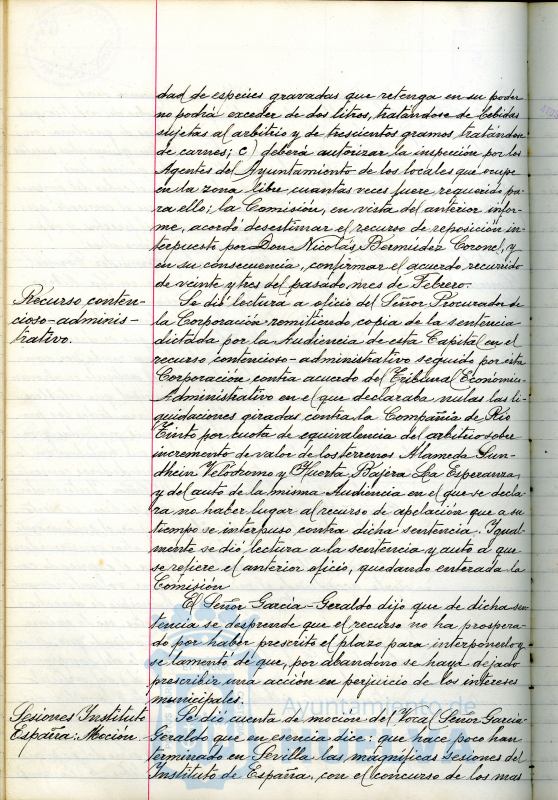 dad de especies gravadas que retenga en su poder
no podrá exceder de dos litros, tratándose de bebidas
sujetas al arbitrio y de trescientos gramos tratándose
de carnes; c) deberá autorizar la inspección por los
Agentes del Ayuntamiento de los locales que ocupe
en la zona libre, cuantas veces fuere requerido pa-
ra ello; la Comisión, en vista del anterior infor-
me, acordó desestimar el recurso de reposición in-
terpuesto por Don Nicolás Bermudez Coronel, y
en su consecuencia, confirmar el acuerdo recurrido
de veinte y tres del pasado mes de Febrero.
Recurso conten-
cioso-adminis-
trativo.
Se dió lectura a oficio del Señor Procurador de
la Corporación remitiendo copia de la sentencia
dictada por la Audiencia de esta Capital en el
recurso contencioso-administrativo seguido por esta
Corporación contra acuerdo del Tribunal Económico
Administrativo en el que declaraba nulas las li-
quidaciones giradas contra la Compañía de Rio
Tinto por cuota de equivalencia del arbitrio sobre
incremento de valor de los terrenos Alameda Sun-
dhein Velodromo y Huerta Bajera La Esperanza,
y del auto de la misma Audiencia en el que se decla-
ra no haber lugar al recurso de apelación que a su
tiempo se interpuso contra dicha sentencia. Igual-
mente se dió lectura a la sentencia y auto a que
se refiere el anterior oficio, quedando enterada la
Comisión
El Señor Garcia-Geraldo dijo que de dicha sen-
tencia se desprende que el recurso no ha prospera-
do por haber prescrito el plazo para interponerlo y
se lamentó de que, por abandono se haya dejado
prescribir una acción en perjuicio de los intereses
municipales.
Sesiones Instituto
España: Moción.
Se dió cuenta de moción del Vocal Señor Garcia-
Geraldo que en esencia dice: que hace poco han
terminado en Sevilla las magníficas sesiones del
Instituto de España, con el concurso de los mas
Ayuntamiento de